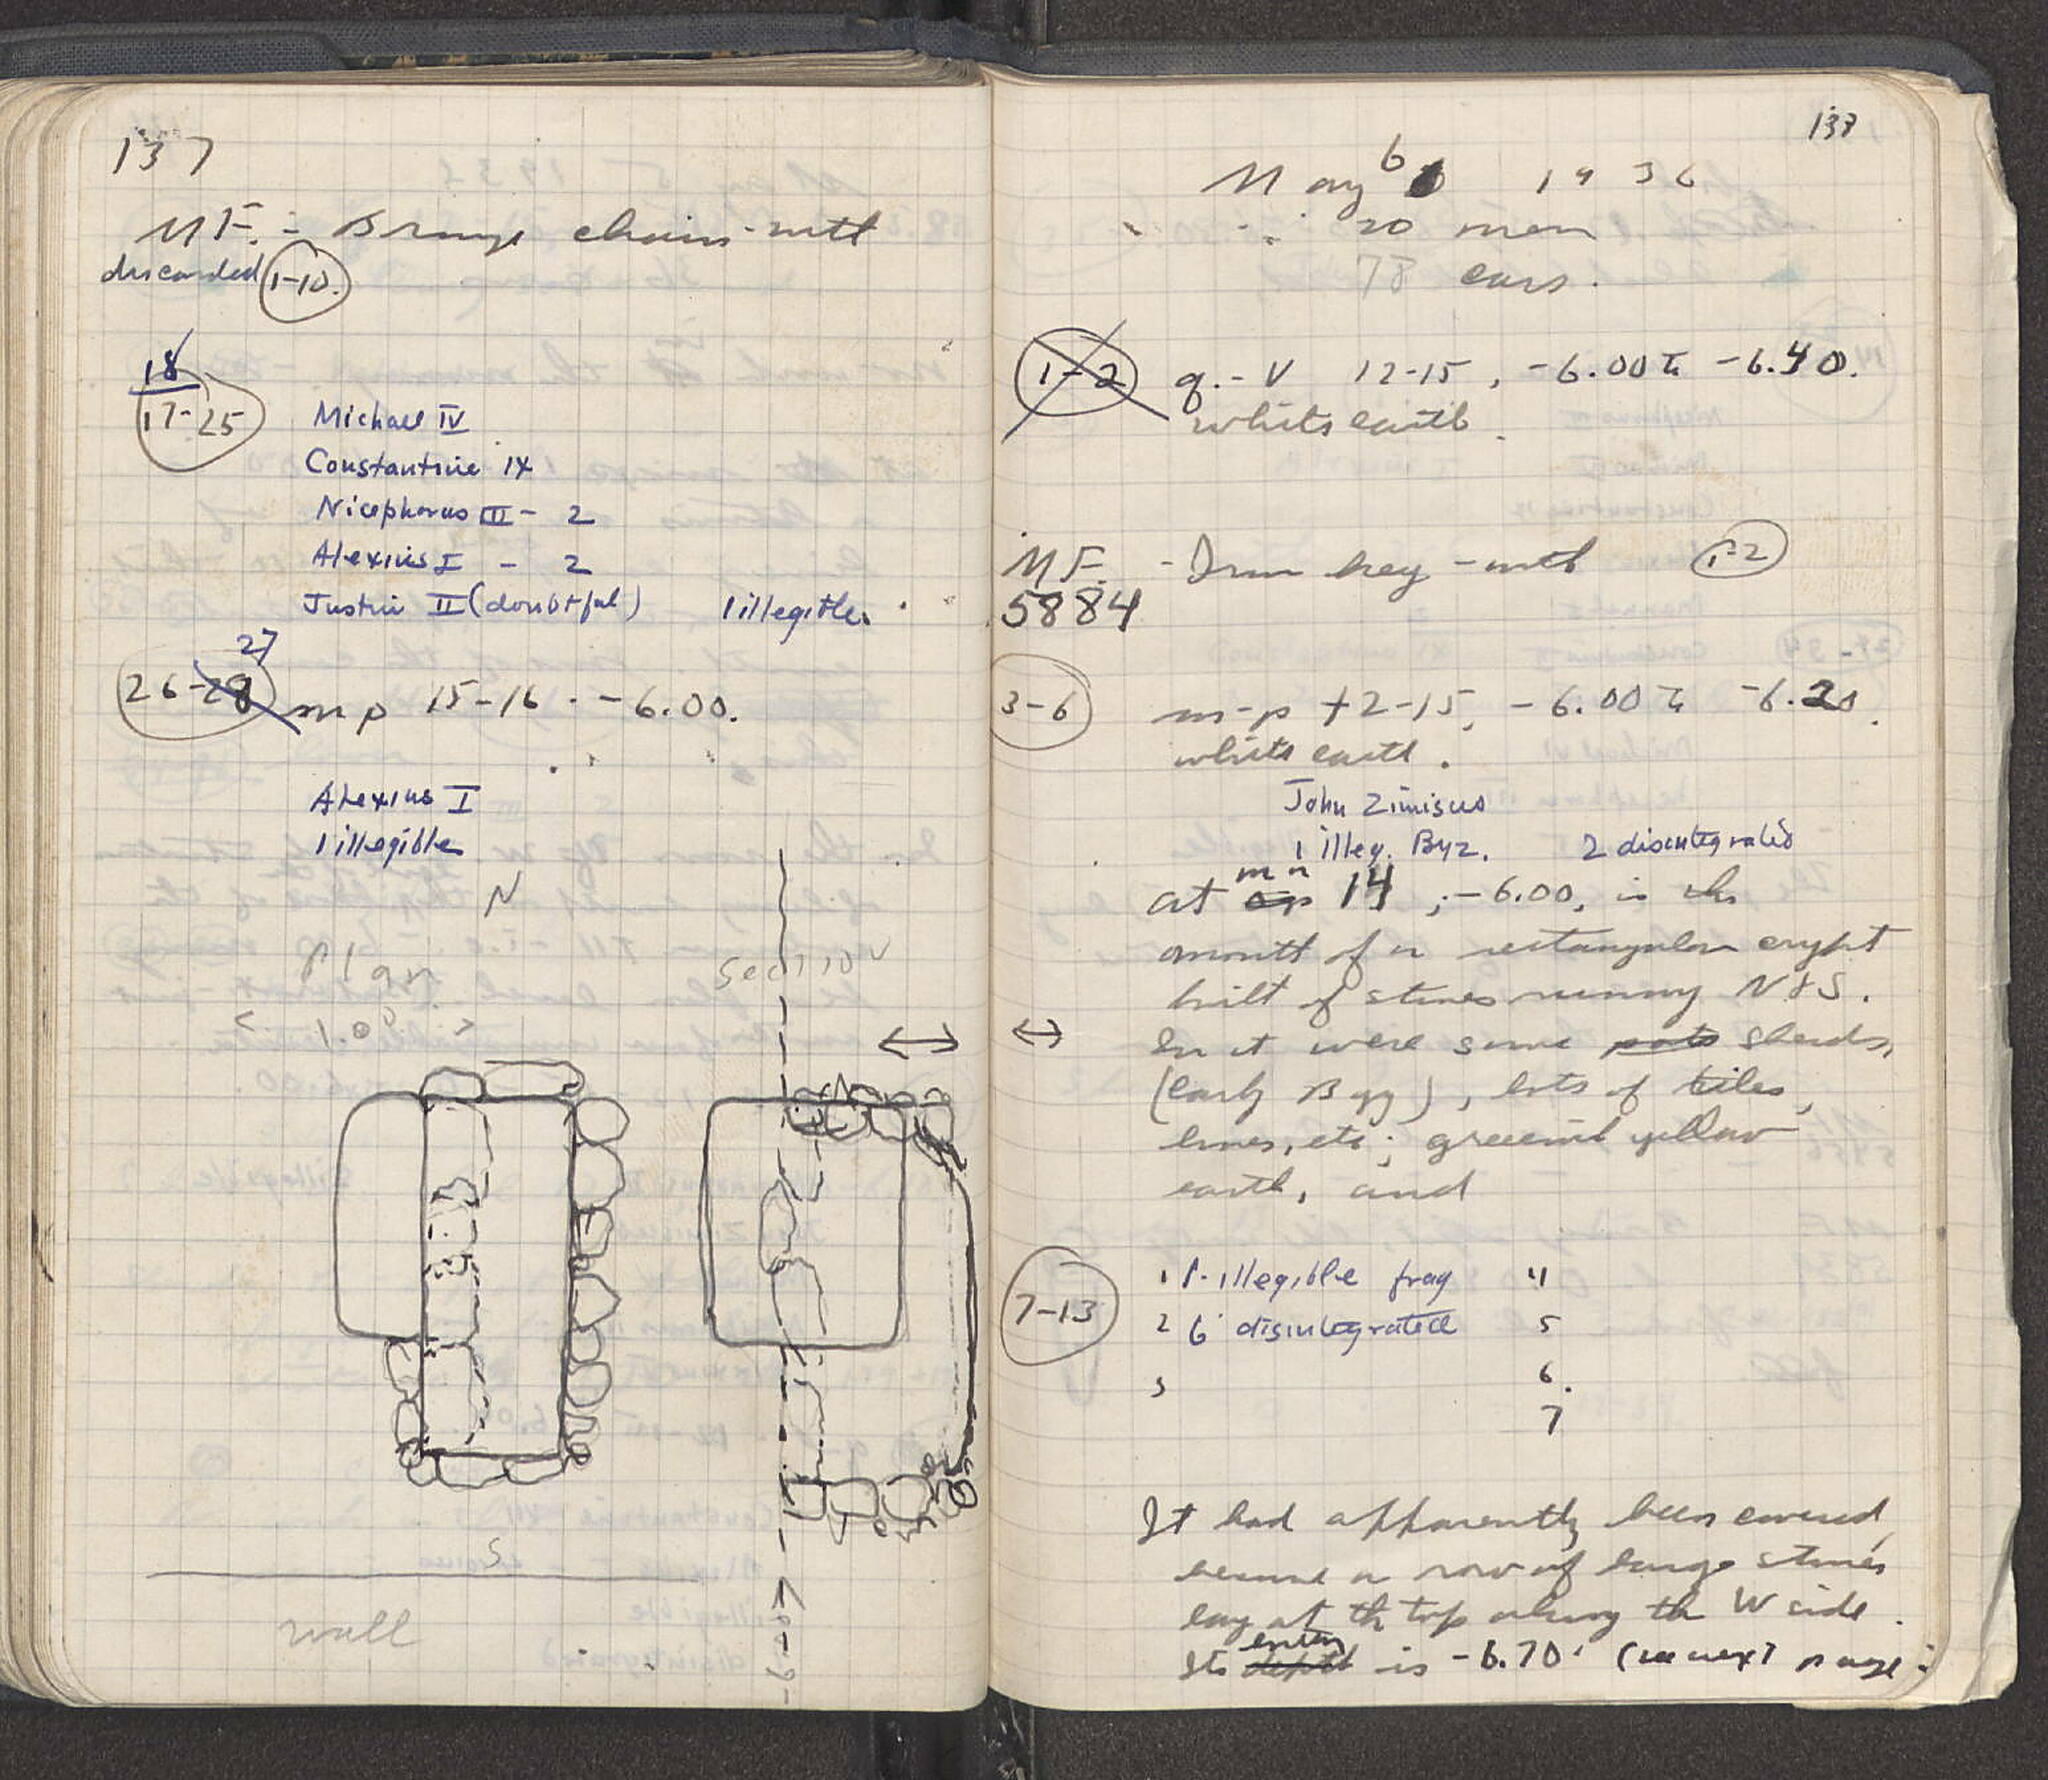 137
MF. - Bronze chain - mtl
discarded 1-10.
18
17-25 Michael IV
Constantine IX
Nicephorus III - 2
Alexius I - 2
Justin II (doubtful) 1 illegible.
27
26-28 m-p 15-16 . -6.00.
Alexius I
1 illegible
N
Plan Section
1.00
S
wall
-6.07
137
May 6 1936
20 men
78 cars.
1-2 q.-v 12-15, -6.00 to -6.40.
white earth.
MF. - Iron key - mtl 1-2
5884
3-6 m-p 12-15, -6.00 to -6.20.
white earth.
John Zimisces
1 illeg. Byz. 2 disintegrated
m n
at 14, -6.00, is the
mouth of a rectangular crypt
built of stones running N & S.
In it were some pots sherds,
(early Byz), lots of tiles,
bones, etc; greenish yellow
earth, and
7-13 1 1 illegible frag 4
2 6 disintegrated 5
3 6.
7
It had apparently been covered,
because a row of large stones
lay at the top along the W side.
Its depth is -6.70. (see next page: